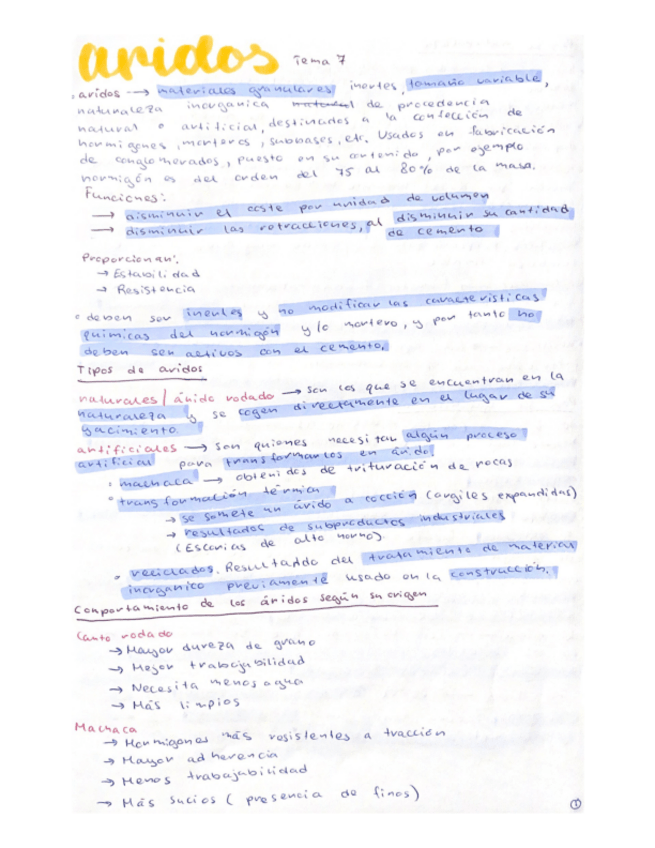 aridos Tema 7
. aridos → materiales granulares inertes, tamaño variable,
naturaleza inorganica de procedencia
natural o artificial, destinados a la confección de
hormigones, morteros, subbases, etc. Usados en fabricación
de conglomerados, puesto en su contenido, por ejemplo
hormigón es del orden del 75 al 80% de la masa.
Funciones:
→ disminuir el coste por unidad de volumen
→ disminuir las retracciones, al disminuir su cantidad
de cemento
Proporcionan:
→ Estabilidad
→ Resistencia
• deben ser inertes y no modificar las caracteristicas
químicas del hormigón y/o mortero, y por tanto no
deben ser activos con el cemento.
Tipos de aridos
naturales / árido rodado → son los que se encuentran en la
naturaleza y se cogen directamente en el lugar de su
yacimiento.
artificiales → son quienes necesitan algún proceso
artificial para transformarlos en árido.
• machaca → obtenidos de trituración de rocas
• transformación térmica
→ se somete un árido a cocción (argiles expandidas)
→ resultados de subproductos industriales
(Escorias de alto horno)
• reciclados. Resultaddo del tratamiento de materias
inorganico previamente usado en la construcción.
Comportamiento de los áridos según su origen
Canto rodado
→ Mayor dureza de grano
→ Mejor trabajabilidad
→ Necesita menos agua
→ Más limpios
Machaca
→ Hormigones más resistentes a tracción
→ Mayor adherencia
→ Menos trabajabilidad
→ Más sucios (presencia de finos)
①